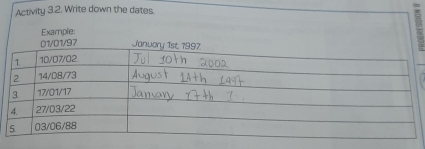 Activity 3.2. Write down the dates.
Example:
01/01/97 January 1st, 1997.
1. 10/07/02 Jul 10th 2002
2. 14/08/73 August 14th
3. 17/01/17 January 17th
4. 27/03/22
5. 03/06/88